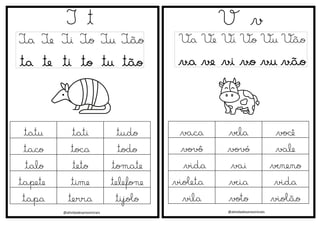 T t
Ta Te Ti To Tu Tão
ta te ti to tu tão
tatu tati tudo
taco toca todo
talo teto tomate
tapete time telefone
tapa terra tijolo
V v
Va Ve Vi Vo Vu Vão
va ve vi vo vu vão
vaca vila você
vovô vovó vale
vida vai veneno
violeta via vida
vila voto violão